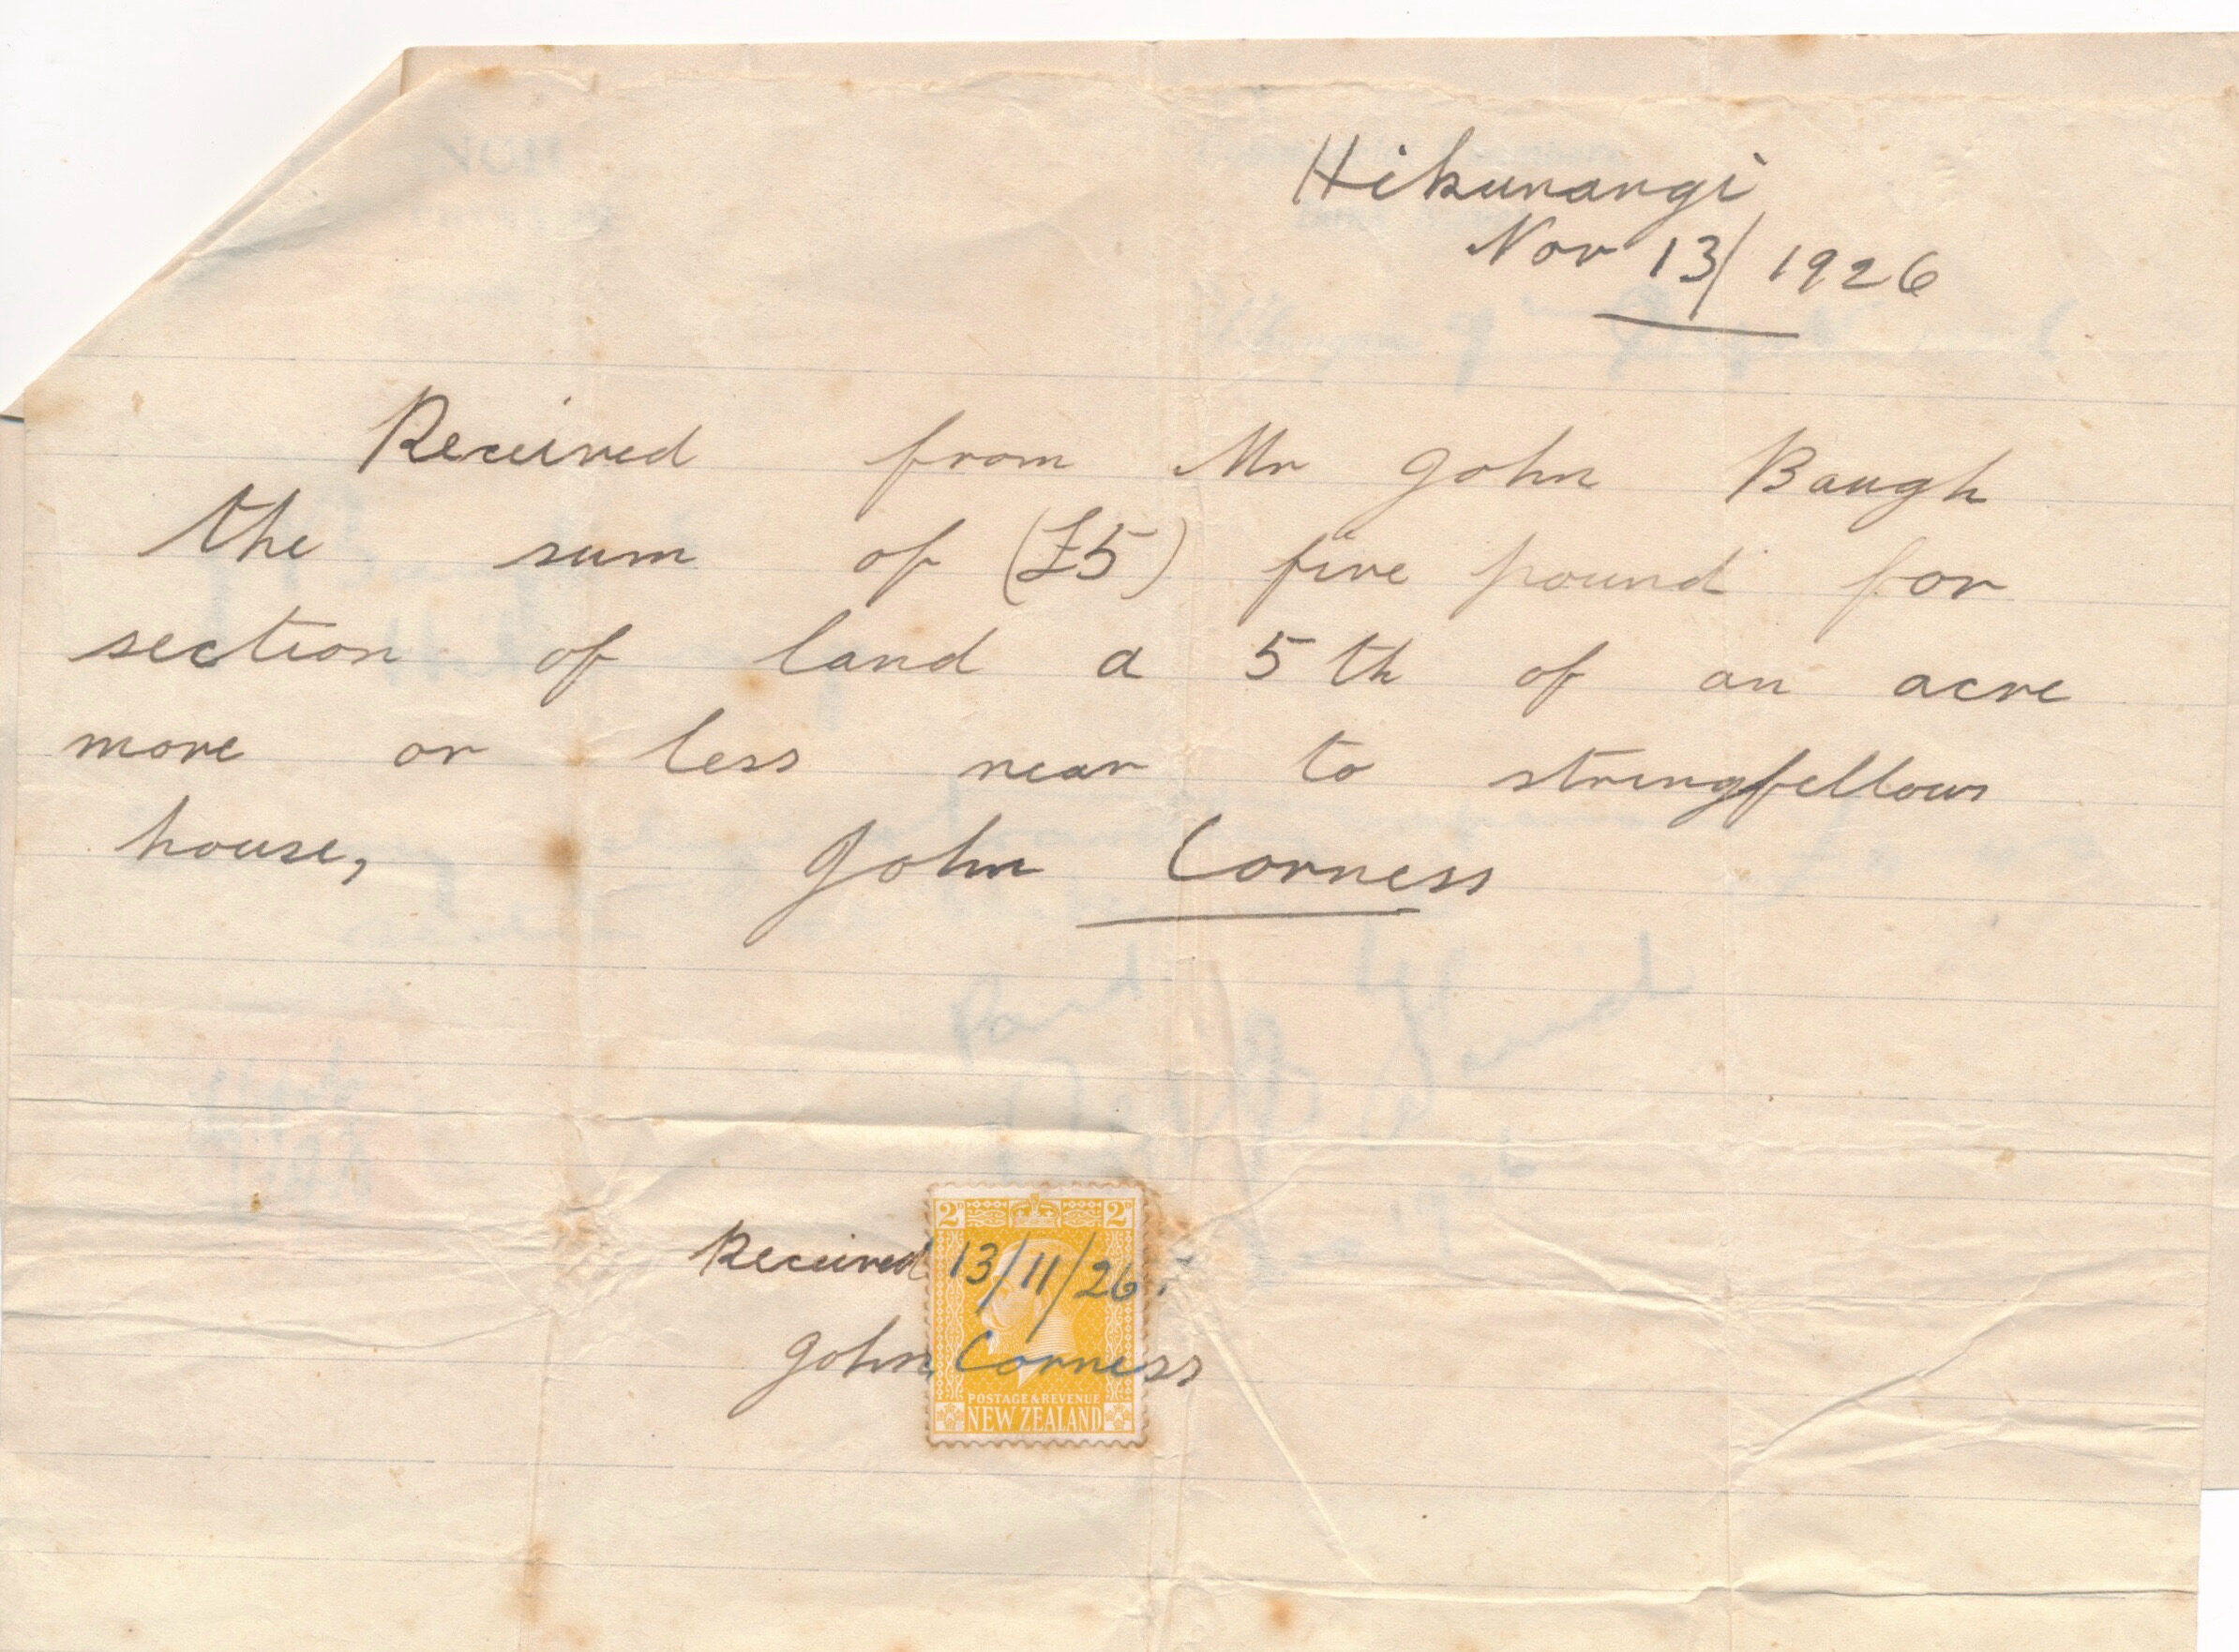 Hikurangi
Nov 13/ 1926
Received from Mr John Baugh
the sum of (£5) five pound for
section of land a 5th of an acre
more or less near to stringfellows
house,
John Corness
2D 2D
Received 13/11/26.
John Corness
POSTAGE & REVENUE
NEW ZEALAND
Paid